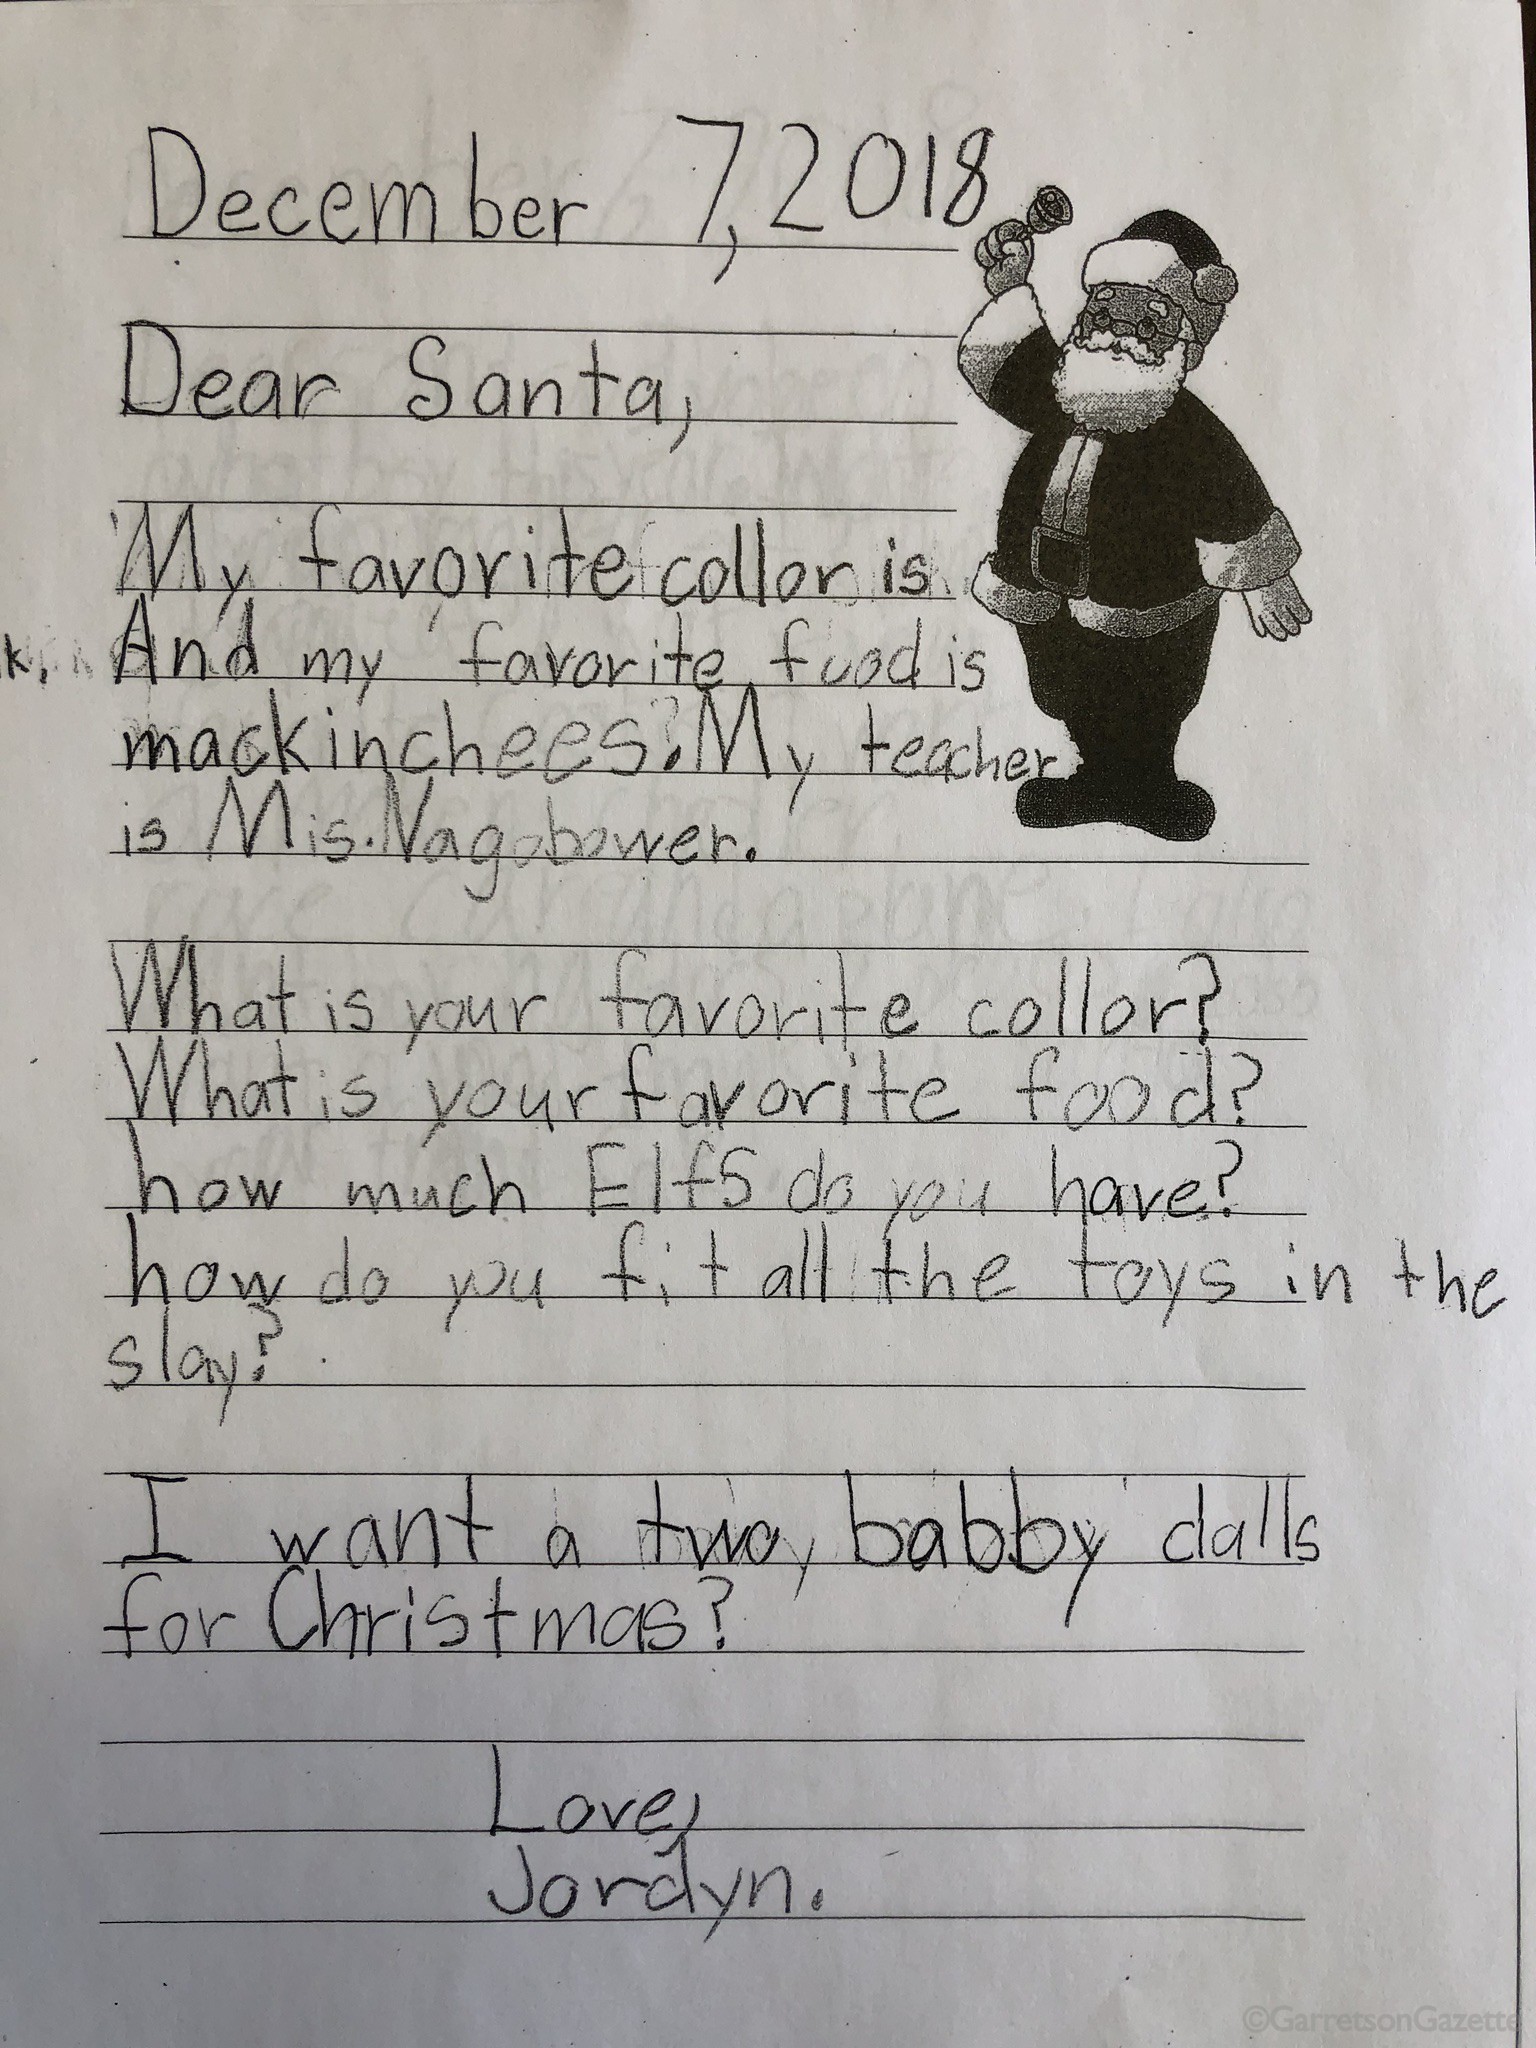 December 7, 2018
Dear Santa,
My favorite collor is
k. And my favorite food is
mackinchees? My teacher
is Mis. Nagobower.
What is your favorite collor?
What is your favorite food?
how much Elfs do you have?
how do you fit all the toys in the
slay?
I want a two babby dalls
for Christmas?
Love,
Jordyn.
©GarretsonGazette